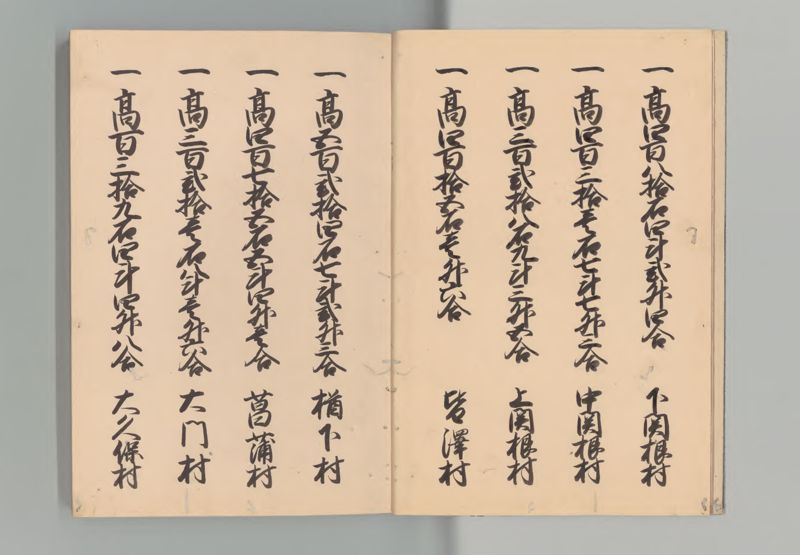 一 高四百八拾石四斗弐升四合 下関根村
一 高四百三拾壱石七斗七升二合 中関根村
一 高三百弐拾八石九斗三升五合 上関根村
一 高四百拾五石壱升六合 皆澤村
一 高五百弐拾四石七斗弐升三合 楢下村
一 高四百七拾五石五斗四升壱合 菖蒲村
一 高三百弐拾壱石八斗壱升六合 大門村
一 高百三拾九石四斗四升八合 大久保村